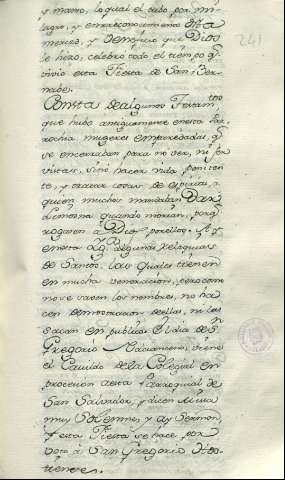 y manco, lo qual el tubo por mi-
lagro, y en reconocimiento
merced, y beneficio que Dios
le hizo, celebró todo el tiempo q̃
vivio esta Fiesta de San Ber-
nabe.
Consta de algunos Testam.tos
que hubo antiguamente en esta Par-
rochia mugeres emparedadas, q̃
se encerraban para no ver, ni ser
vistas, sino hacer vida peniten-
te, y tratar cosas de espiritu, a
quien muchos mandaban dar
limosna quando morian, porq̃
rogasen a Dios por ellos. Ay
en esta Yg.ª algunas Reliquias
de Santos, las quales tienen
en mucha veneracion, pero como
no se saben los nombres, no ha-
cen demostracion de ellas, ni las
sacan en publico. El dia de S.
Gregorio Nacianceno, viene
el Cavildo de la Colegial en
procecion a esta Parroquial de
San Salvador, y dicen Missa
muy solemne, y ay Sermon,
y esta Fiesta se hace por
voto à San Gregorio
241